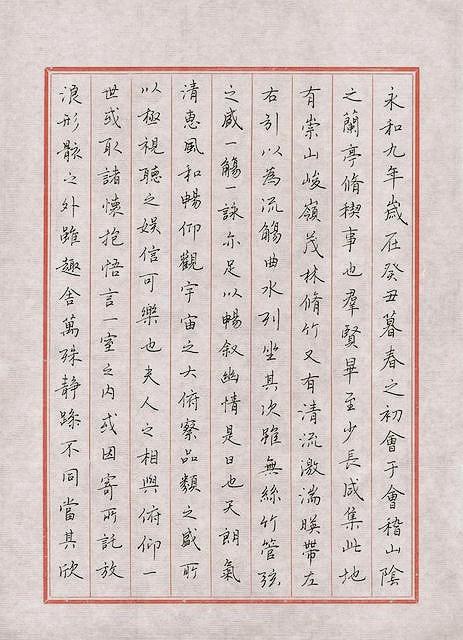 永和九年歲在癸丑暮春之初會于會稽山陰
之蘭亭脩稧事也羣賢畢至少長咸集此地
有崇山峻嶺茂林脩竹又有清流激湍暎帶左
右引以為流觴曲水列坐其次雖無絲竹管弦
之盛一觴一詠亦足以暢叙幽情是日也天朗氣
清惠風和暢仰觀宇宙之大俯察品類之盛所
以極視聽之娛信可樂也夫人之相與俯仰一
世或取諸懷抱悟言一室之內或因寄所託放
浪形骸之外雖趣舍萬殊静躁不同當其欣